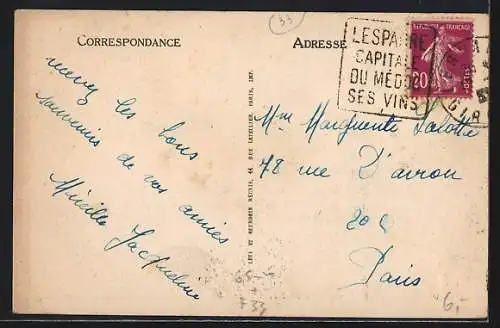 33
CORRESPONDANCE
ADRESSE
LESPARRE
CAPITALE
DU MÉDOC
SES VINS
RÉPUBLIQUE FRANÇAISE
20
POSTES
GIR
recevez les bons
souvenirs de vos amies
Mireille Jacqueline
LÉVY ET NEURDEIN RÉUNIS, 44, RUE LETELLIER, PARIS, IMP.
Mme Marguerite Lalotte
78 rue d'avron
20e
Paris
6,-